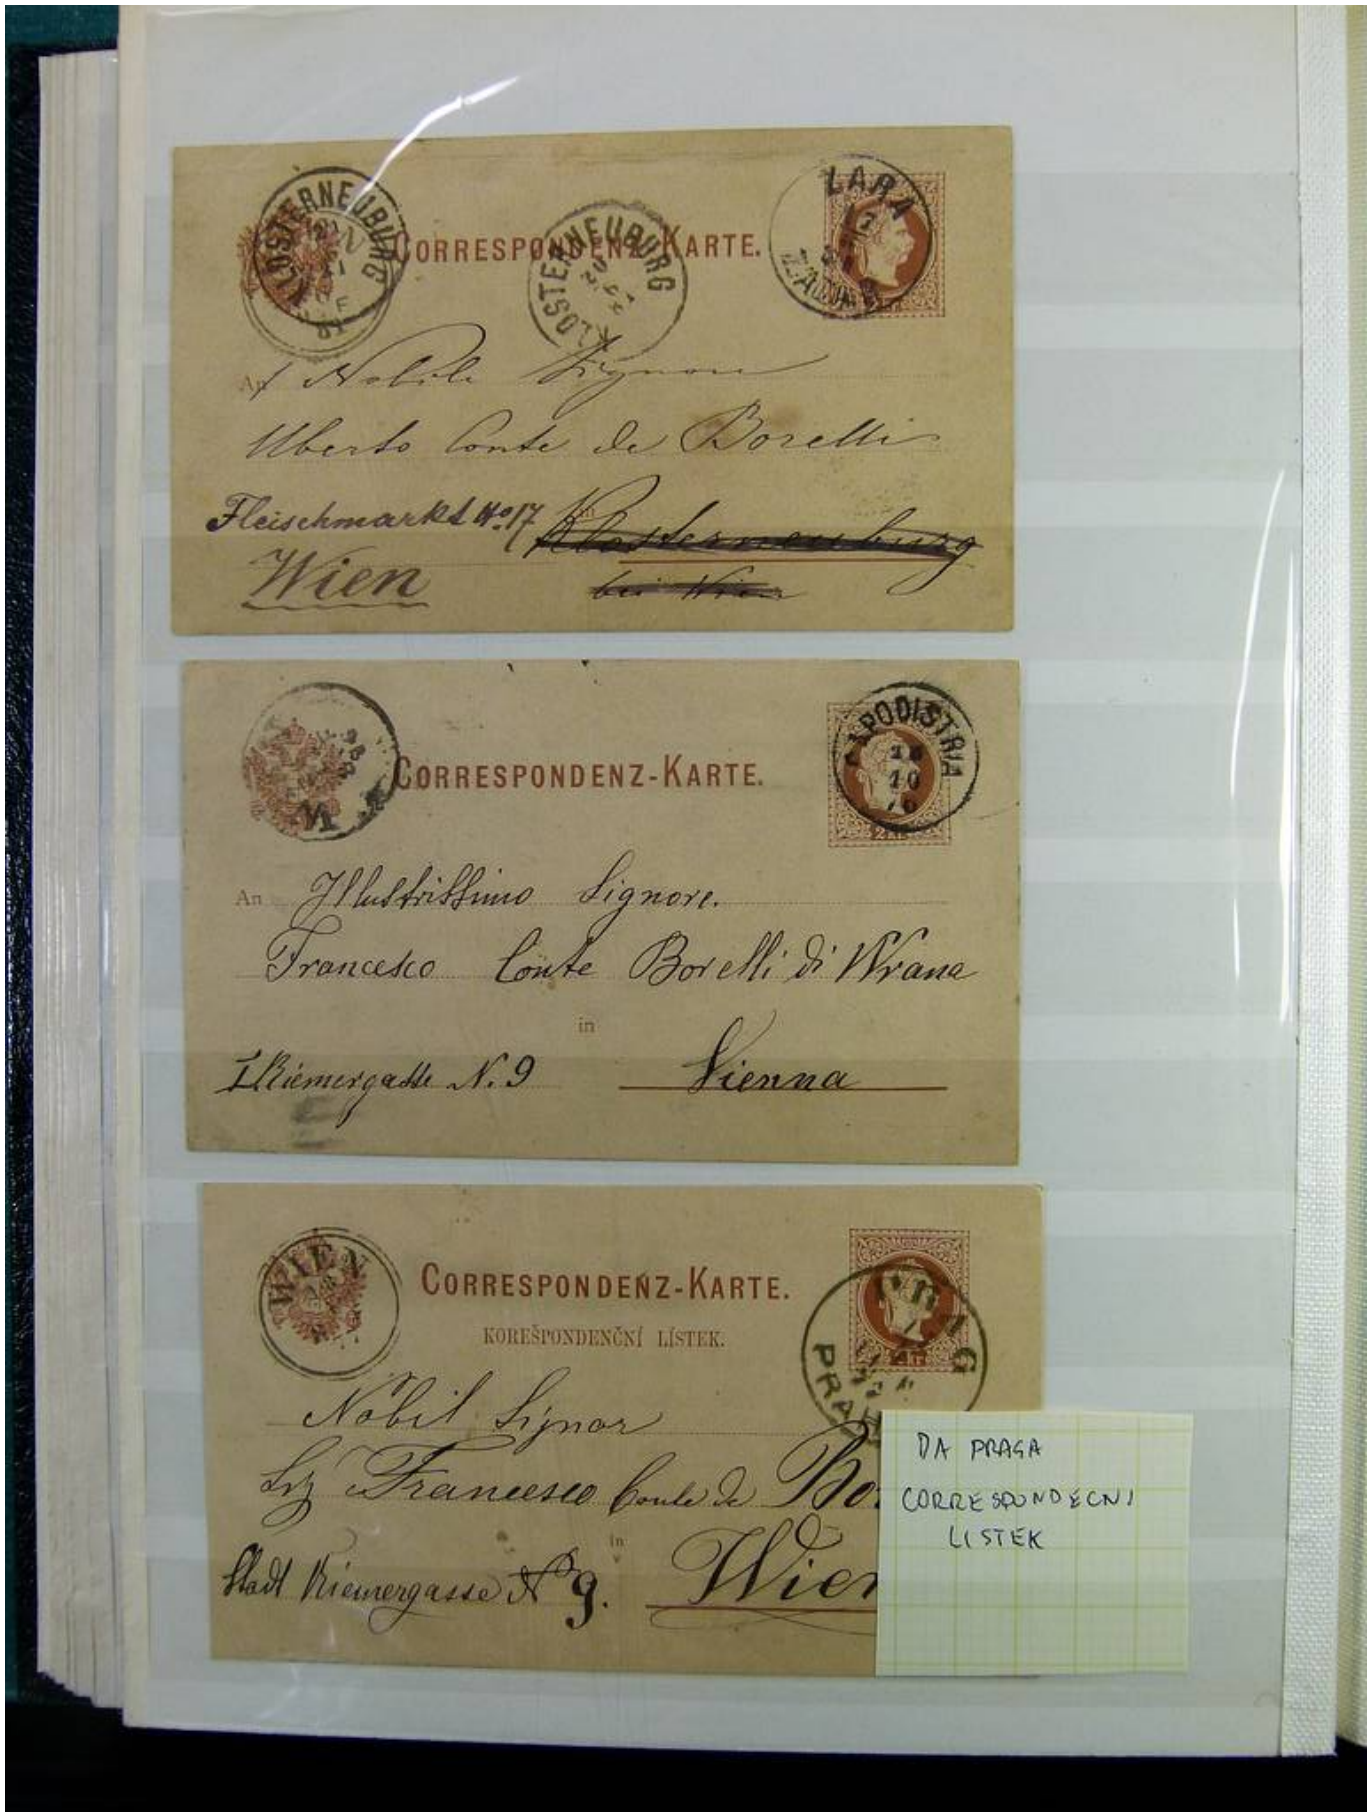 KLOSTERNEUBURG
CORRESPONDENZ-KARTE.
KLOSTERNEUBURG
ZARA
An
Nobile Signore
Uberto Conte de Borelli
Fleischmarkt No 17
in
Klosterneuburg
Wien
bei Wien
CORRESPONDENZ-KARTE.
CAPODISTRIA
18
10
2 KR.
An Illustrissimo Signore.
Francesco Conte Borelli di Wrana
in
I Riemergasse N. 9
Vienna
WIEN
CORRESPONDENZ-KARTE.
KOREŠPONDENČNÍ LÍSTEK.
PRAG
Nobil Signor
Francesco Conte de Bo
in
Stadt Riemergasse No 9.
Wien
DA PRAGA
CORRESPONDECNI
LISTEK